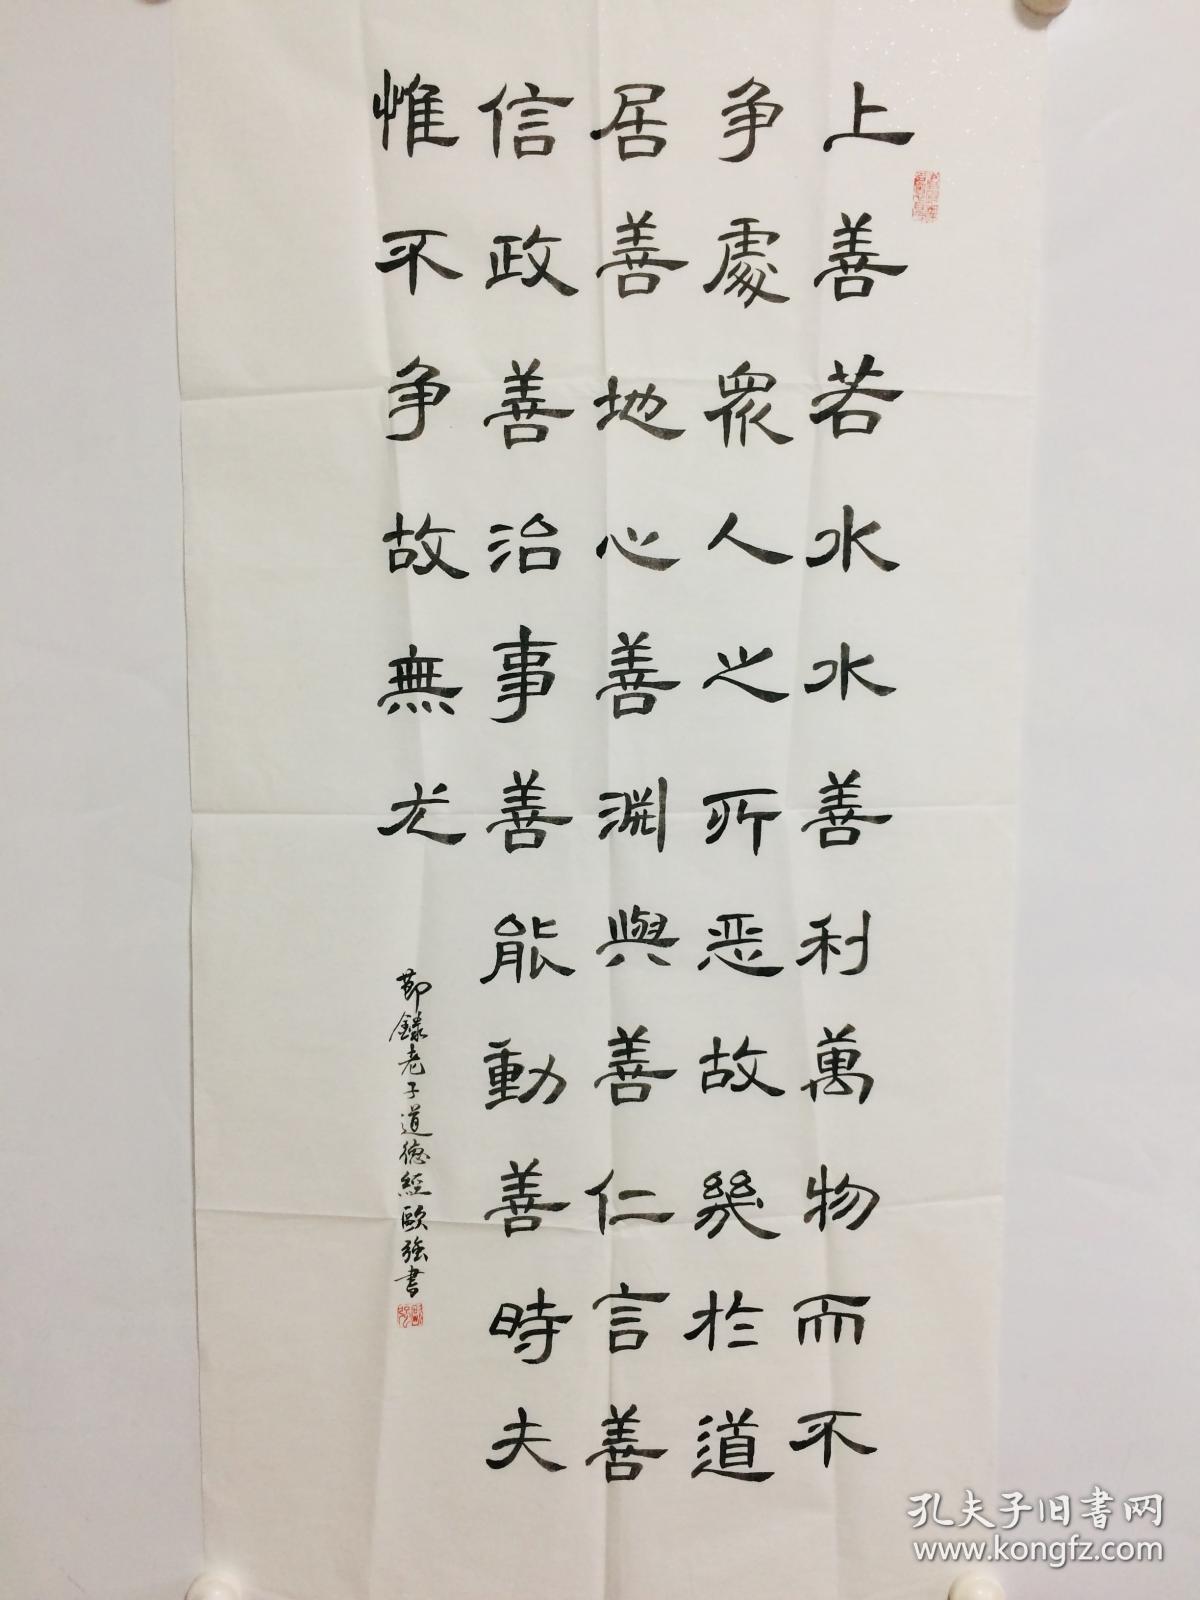 上善若水水善利萬物而不
争處衆人之所恶故幾於道
居善地心善淵與善仁言善
信政善治事善能動善時夫
惟不争故無尤
節錄老子道德經歐強書
孔夫子旧書网
www.kongfz.com